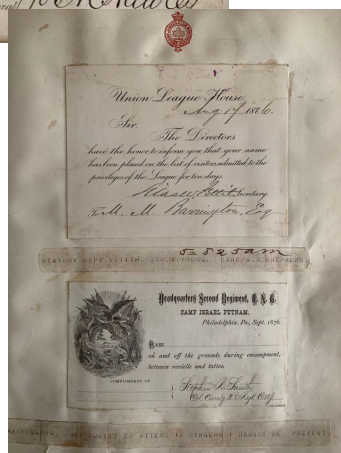 Union League House,
Aug 17 1876.
Sir,
The Directors
have the honor to inform you that your name
has been placed on the list of visitors admitted to the
privileges of the League for ten days
Silas W Pettit Secretary
To M. M. Barrington, Esq
5= 825am
NEWYORK SEPT.
Headquarters Second Regiment, C. N. G.
CAMP ISRAEL PUTNAM,
Philadelphia, Pa., Sept. 1876.
PASS
on and off the grounds during encampment,
between reveille and tattoo.
COMPLIMENTS OF
Stephen R. Smith
Col. Comdg 2d Regt CNG
TO ATTEND TO CANNOT BE PRESENT.